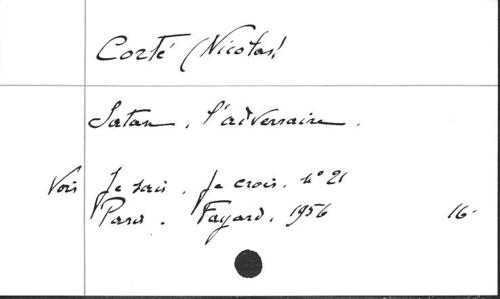 Corté (Nicolas)
Satan, l'adversaire.
Vois Je sais. Je crois. n° 21
Paris. Fayard, 1956 16.